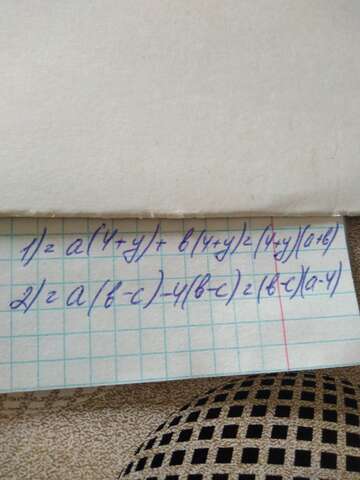 1) = a(4+y) + в(4+y) = (4+y)(a+в)
2) = a(в-c)-4(в-c) = (в-c)(a-4)